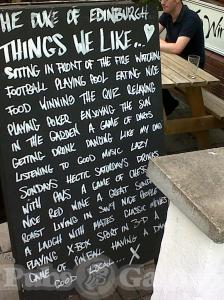 THE DUKE OF EDINBURGH
THINGS WE LIKE..
SITTING IN FRONT OF THE FIRE WATCHING
FOOTBALL PLAYING POOL EATING NICE
FOOD WINNING THE QUIZ RELAXING
PLAYING POKER ENJOYING THE SUN
IN THE GARDEN A GAME OF DARTS
GETTING DRUNK DANCING LIKE MY DAD
LISTENING TO GOOD MUSIC LAZY
SUNDAYS HECTIC SATURDAYS DRINKS
WITH PALS A GAME OF CHESS
NICE RED WINE A GREAT SUNDAY
ROAST LIVING IN SW9 NICE PEOPLE
A LAUGH WITH MATES CLASSIC
PLAYING X-BOX SPORT IN 3-D
GAME OF PINBALL HAVING A
GOOD LOCAL... X